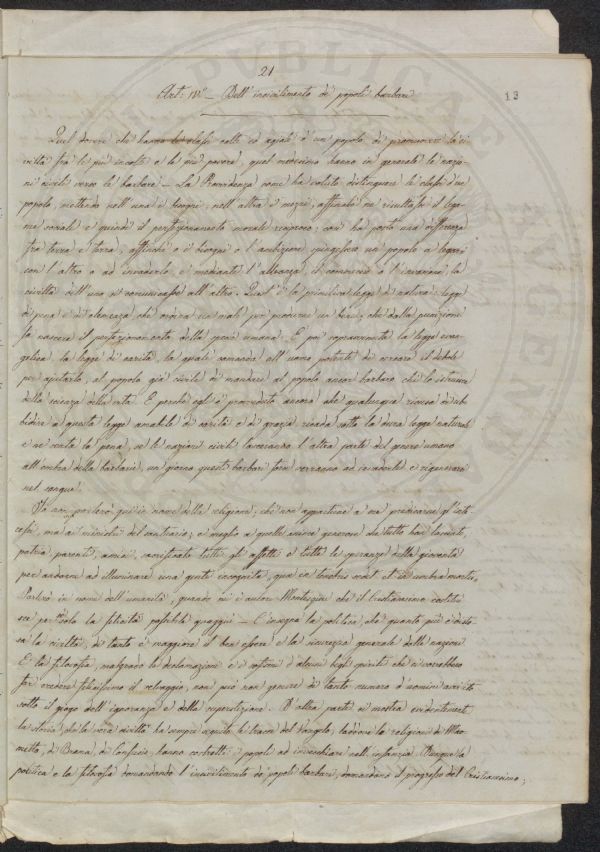 21
13
Art: IV° — Dell'incivilimento de' popoli barbari
Quel dovere che hanno le classi colte ed agiate d'un popolo di promuovere la ci-
viltà fra le più incolte e le più povere, quel medesimo hanno in generale le nazio-
ni civili verso le barbare — La Provvidenza come ha voluto distinguere le classi d'un
popolo, mettendo nell'una i bisogni, nell'altra i mezzi, affinché ne risultasse il lega-
me sociale e quindi il perfezionamento morale reciproco; così ha posto una differenza
fra terra e terra, affinché o i bisogni o l'ambizione spingesse un popolo a legarsi
con l'altro o ad invaderlo, e mediante l'alleanza, il commercio o l'invasione, la
civiltà dell'uno si comunicasse all'altro. Quest'è la primitiva legge di natura: legge
di pena e di clemenza, che ordina un male per procurare un bene; che dalla punizione
fa nascere il perfezionamento della specie umana. E poi sopravvenuta la legge evan-
gelica, la legge di carità, la quale comanda all'uomo potente di cercare il debole
per ajutarlo, al popolo già civile di mandare al popolo ancor barbaro chi lo istruisca
della scienza della vita. E perché egli è provveduto ancora che qualunque ricusa di ub-
bidire a questa legge amabile di carità e di grazia ricada sotto la dura legge naturale
e ne senta la pena, se le nazioni civili lasceranno l'altra parte del genere umano
all'ombra della barbarie, un giorno questi barbari forse verranno ad invaderle e rigenerarsi
nel sangue.
Io non parlerò qui in nome della religione; che non appartiene a me predicarne gl'inte-
ressi, ma ai ministri del santuario; e meglio a quelle anime generose che tutto han lasciato,
patria, parenti, amici, sacrificato tutti gli affetti e tutte le speranze della gioventù
per andarne ad illuminare una gente incognita, quae in tenebris sedet et in umbra mortis.
Parlerò in nome dell'umanità, quando qui è autore Montesquieu che il Cristianesimo costitui-
sce per solo la felicità possibile quaggiù — C'insegna la politica, che quanto più è diffu-
sa la civiltà, di tanto è maggiore il ben essere e la sicurezza generale delle nazioni
E la filosofia, malgrado le declamazioni e i sofismi d'alcuni begli spiriti che ci vorrebbero
far credere felicissimo il selvaggio, non può non gemere di tanto numero d'uomini avviliti
sotto il giogo dell'ignoranza e della superstizione. D'altra parte ci mostra evidentemente
la storia, che la vera civiltà ha sempre seguito le tracce del Vangelo, laddove le religioni di Mao-
metto, di Brama, di Confucio, hanno costretti i popoli ad invecchiare nell'infanzia. Dunque la
politica e la filosofia domandando l'incivilimento de' popoli barbari, domandano il progresso del Cristianesimo;